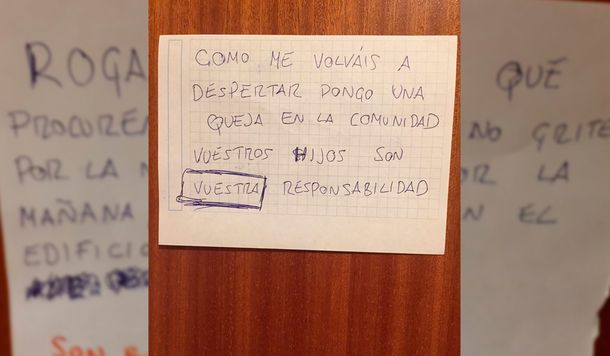 COMO ME VOLVÁIS A
DESPERTAR PONGO UNA
QUEJA EN LA COMUNIDAD
VUESTROS HIJOS SON
VUESTRA RESPONSABILIDAD
ROGA
PROCUREN
POR LA
MAÑANA
EDIFICIO
SON
QUE
NO GRITE
POR LA
EN EL